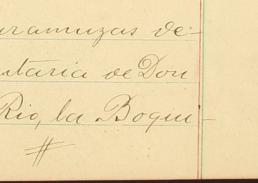 aramuzas de-
staria de Don
Rio, la Boqui-
#